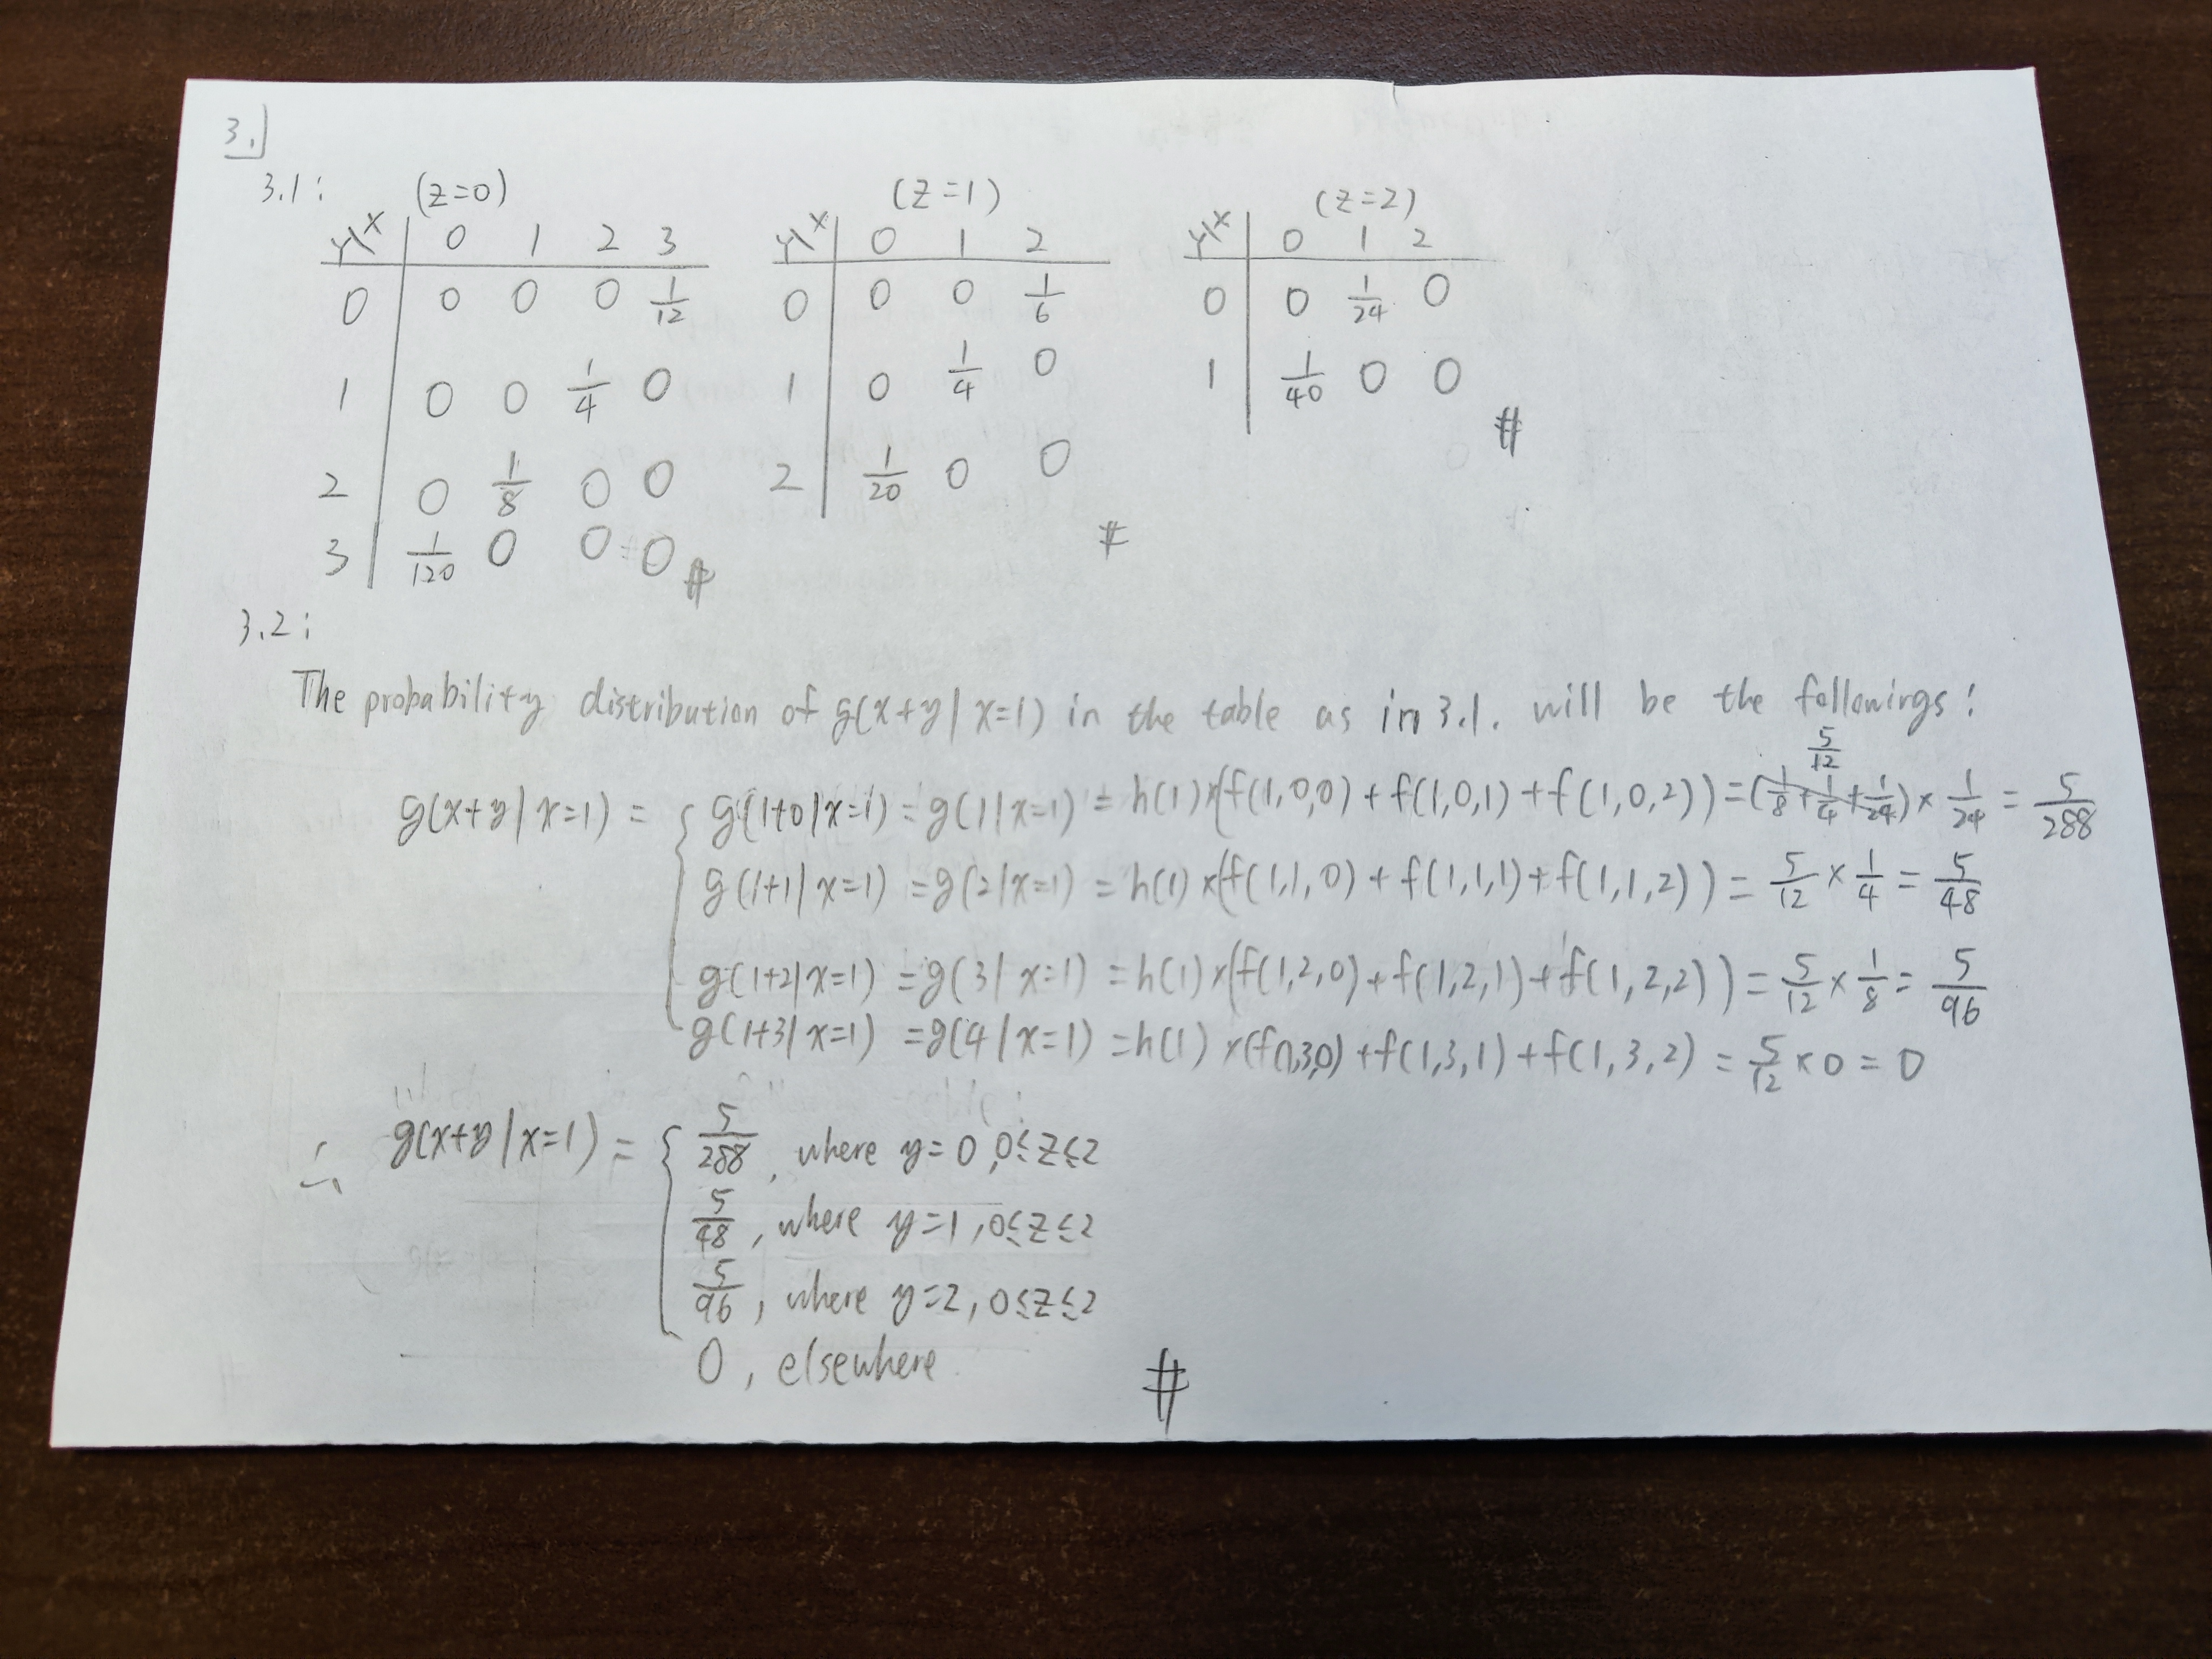 3.
3.1: (z=0) (z=1) (z=2)
Y\X 0 1 2 3 Y\X 0 1 2 Y\X 0 1 2
0 0 0 0 1/12 0 0 0 1/6 0 0 1/24 0
1 0 0 1/4 0 1 0 1/4 0 1 1/40 0 0 #
2 0 1/8 0 0 2 1/20 0 0 #
3 1/120 0 0 0 #
3.2:
The probability distribution of g(x+y | x=1) in the table as in 3.1. will be the followings:
5/12
g(x+y | x=1) = { g(1+0 | x=1) = g(1 | x=1) = h(1)×(f(1,0,0) + f(1,0,1) + f(1,0,2)) = (1/8 + 1/4 + 1/24) × 1/24 = 5/288
g(1+1 | x=1) = g(2 | x=1) = h(1)×(f(1,1,0) + f(1,1,1) + f(1,1,2)) = 5/12 × 1/4 = 5/48
g(1+2 | x=1) = g(3 | x=1) = h(1)×(f(1,2,0) + f(1,2,1) + f(1,2,2)) = 5/12 × 1/8 = 5/96
g(1+3 | x=1) = g(4 | x=1) = h(1)×(f(1,3,0) + f(1,3,1) + f(1,3,2) = 5/12 × 0 = 0
∴ g(x+y | x=1) = { 5/288, where y=0, 0≤z≤2
5/48, where y=1, 0≤z≤2
5/96, where y=2, 0≤z≤2
0, elsewhere. #